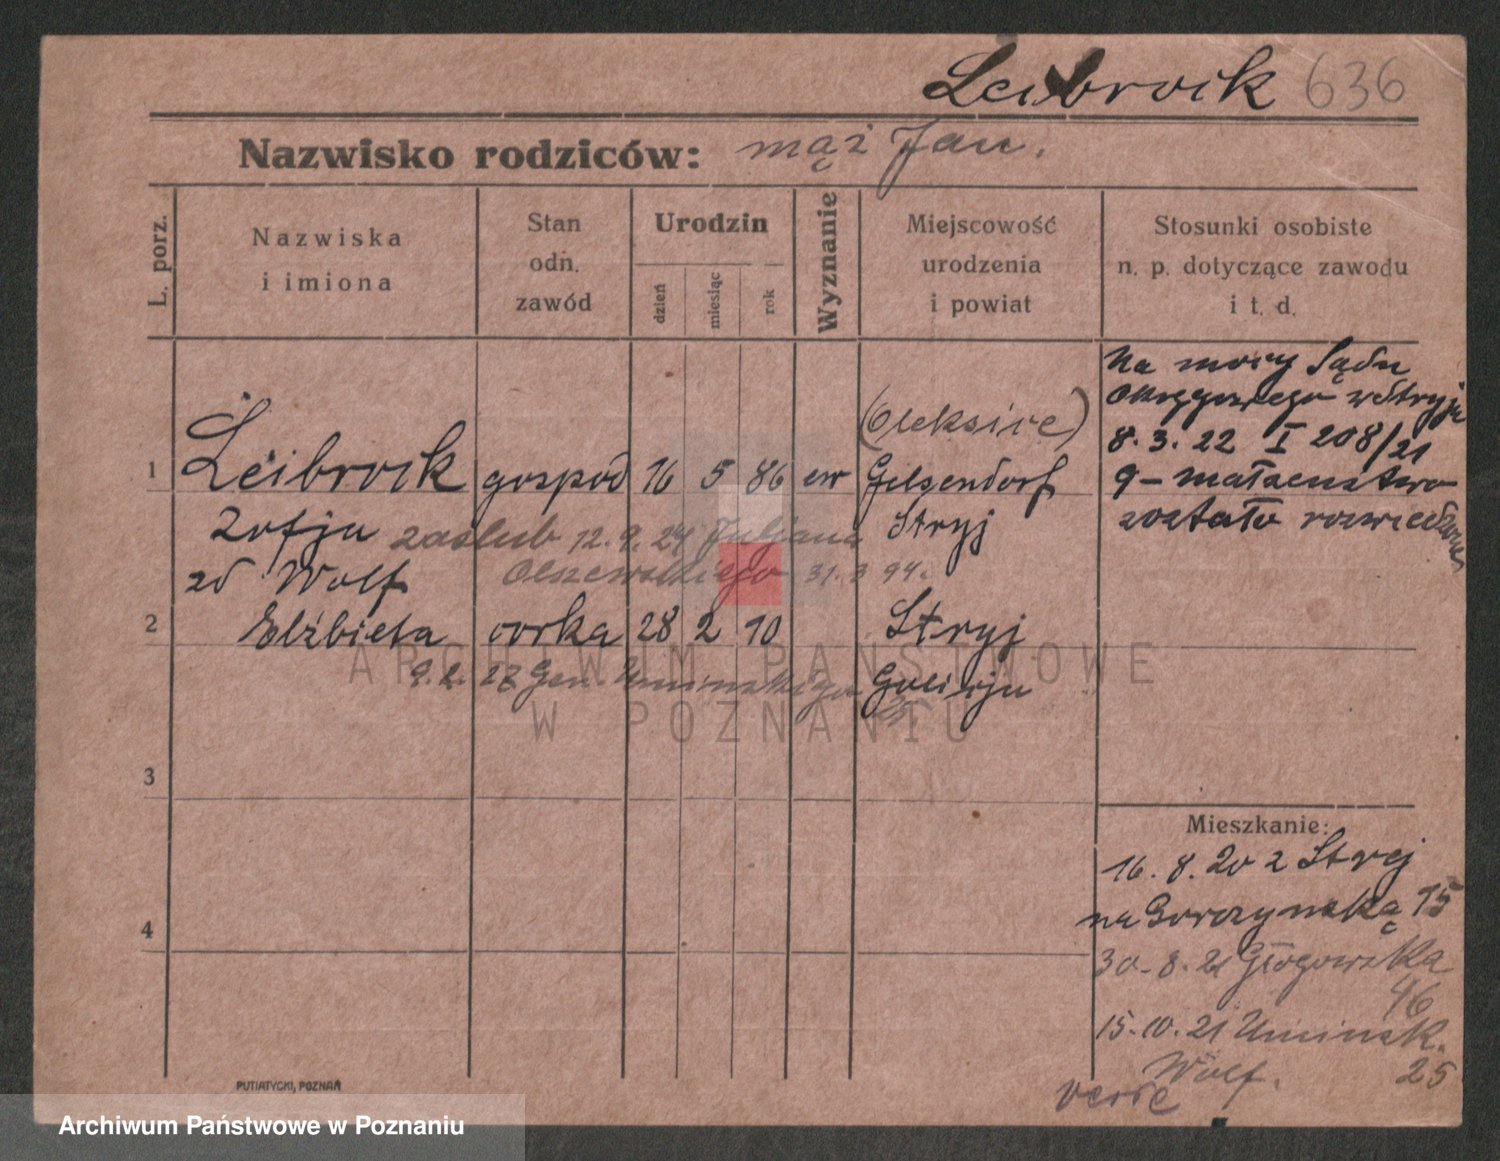 Leibrock 636
Nazwisko rodziców: mąż Jan.
L. porz.
Nazwiska
i imiona
Stan
odn.
zawód
Urodzin
dzień
miesiąc
rok
Wyznanie
Miejscowość
urodzenia
i powiat
Stosunki osobiste
n. p. dotyczące zawodu
i t. d.
Na mocy Sądu
Okręgowego w Stryju
8. 3. 22 I 208/21
małżeństwo
zostało rozwiedzione
(Oleksice)
1 Leibrock gospod 16 5 86 ew Gelsendorf
Zofja zaślub 12. 9. 24 Juljana Stryj
zd Wolf Olszewskiego 31. 3 94.
2 Elżbieta córka 28 2 10 Stryj
9. 2. 28 Gen. Umińskiego Galicja
3
4
Mieszkanie:
16. 8. 20 z Stryj
na Gorczyńską 15
30. 8. 21 Głogowska
46
15. 10. 21 Umińsk.
25
Wolf.
verte
PUTIATYCKI, POZNAŃ
ARCHIWUM PAŃSTWOWE
W POZNANIU
Archiwum Państwowe w Poznaniu